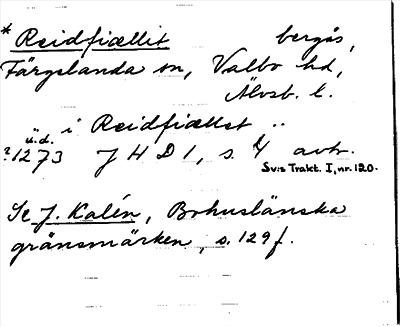 * Reidfiællit bergås,
Färgelanda sn, Valbo hd,
Älvsb. l.
i Reidfiællet ..
ä.d.
?1273 J H D 1, s. 4 avtr.
Sv:s Trakt. I, nr. 120.
Se J. Kalén, Bohuslänska
gränsmärken, s. 129 f.